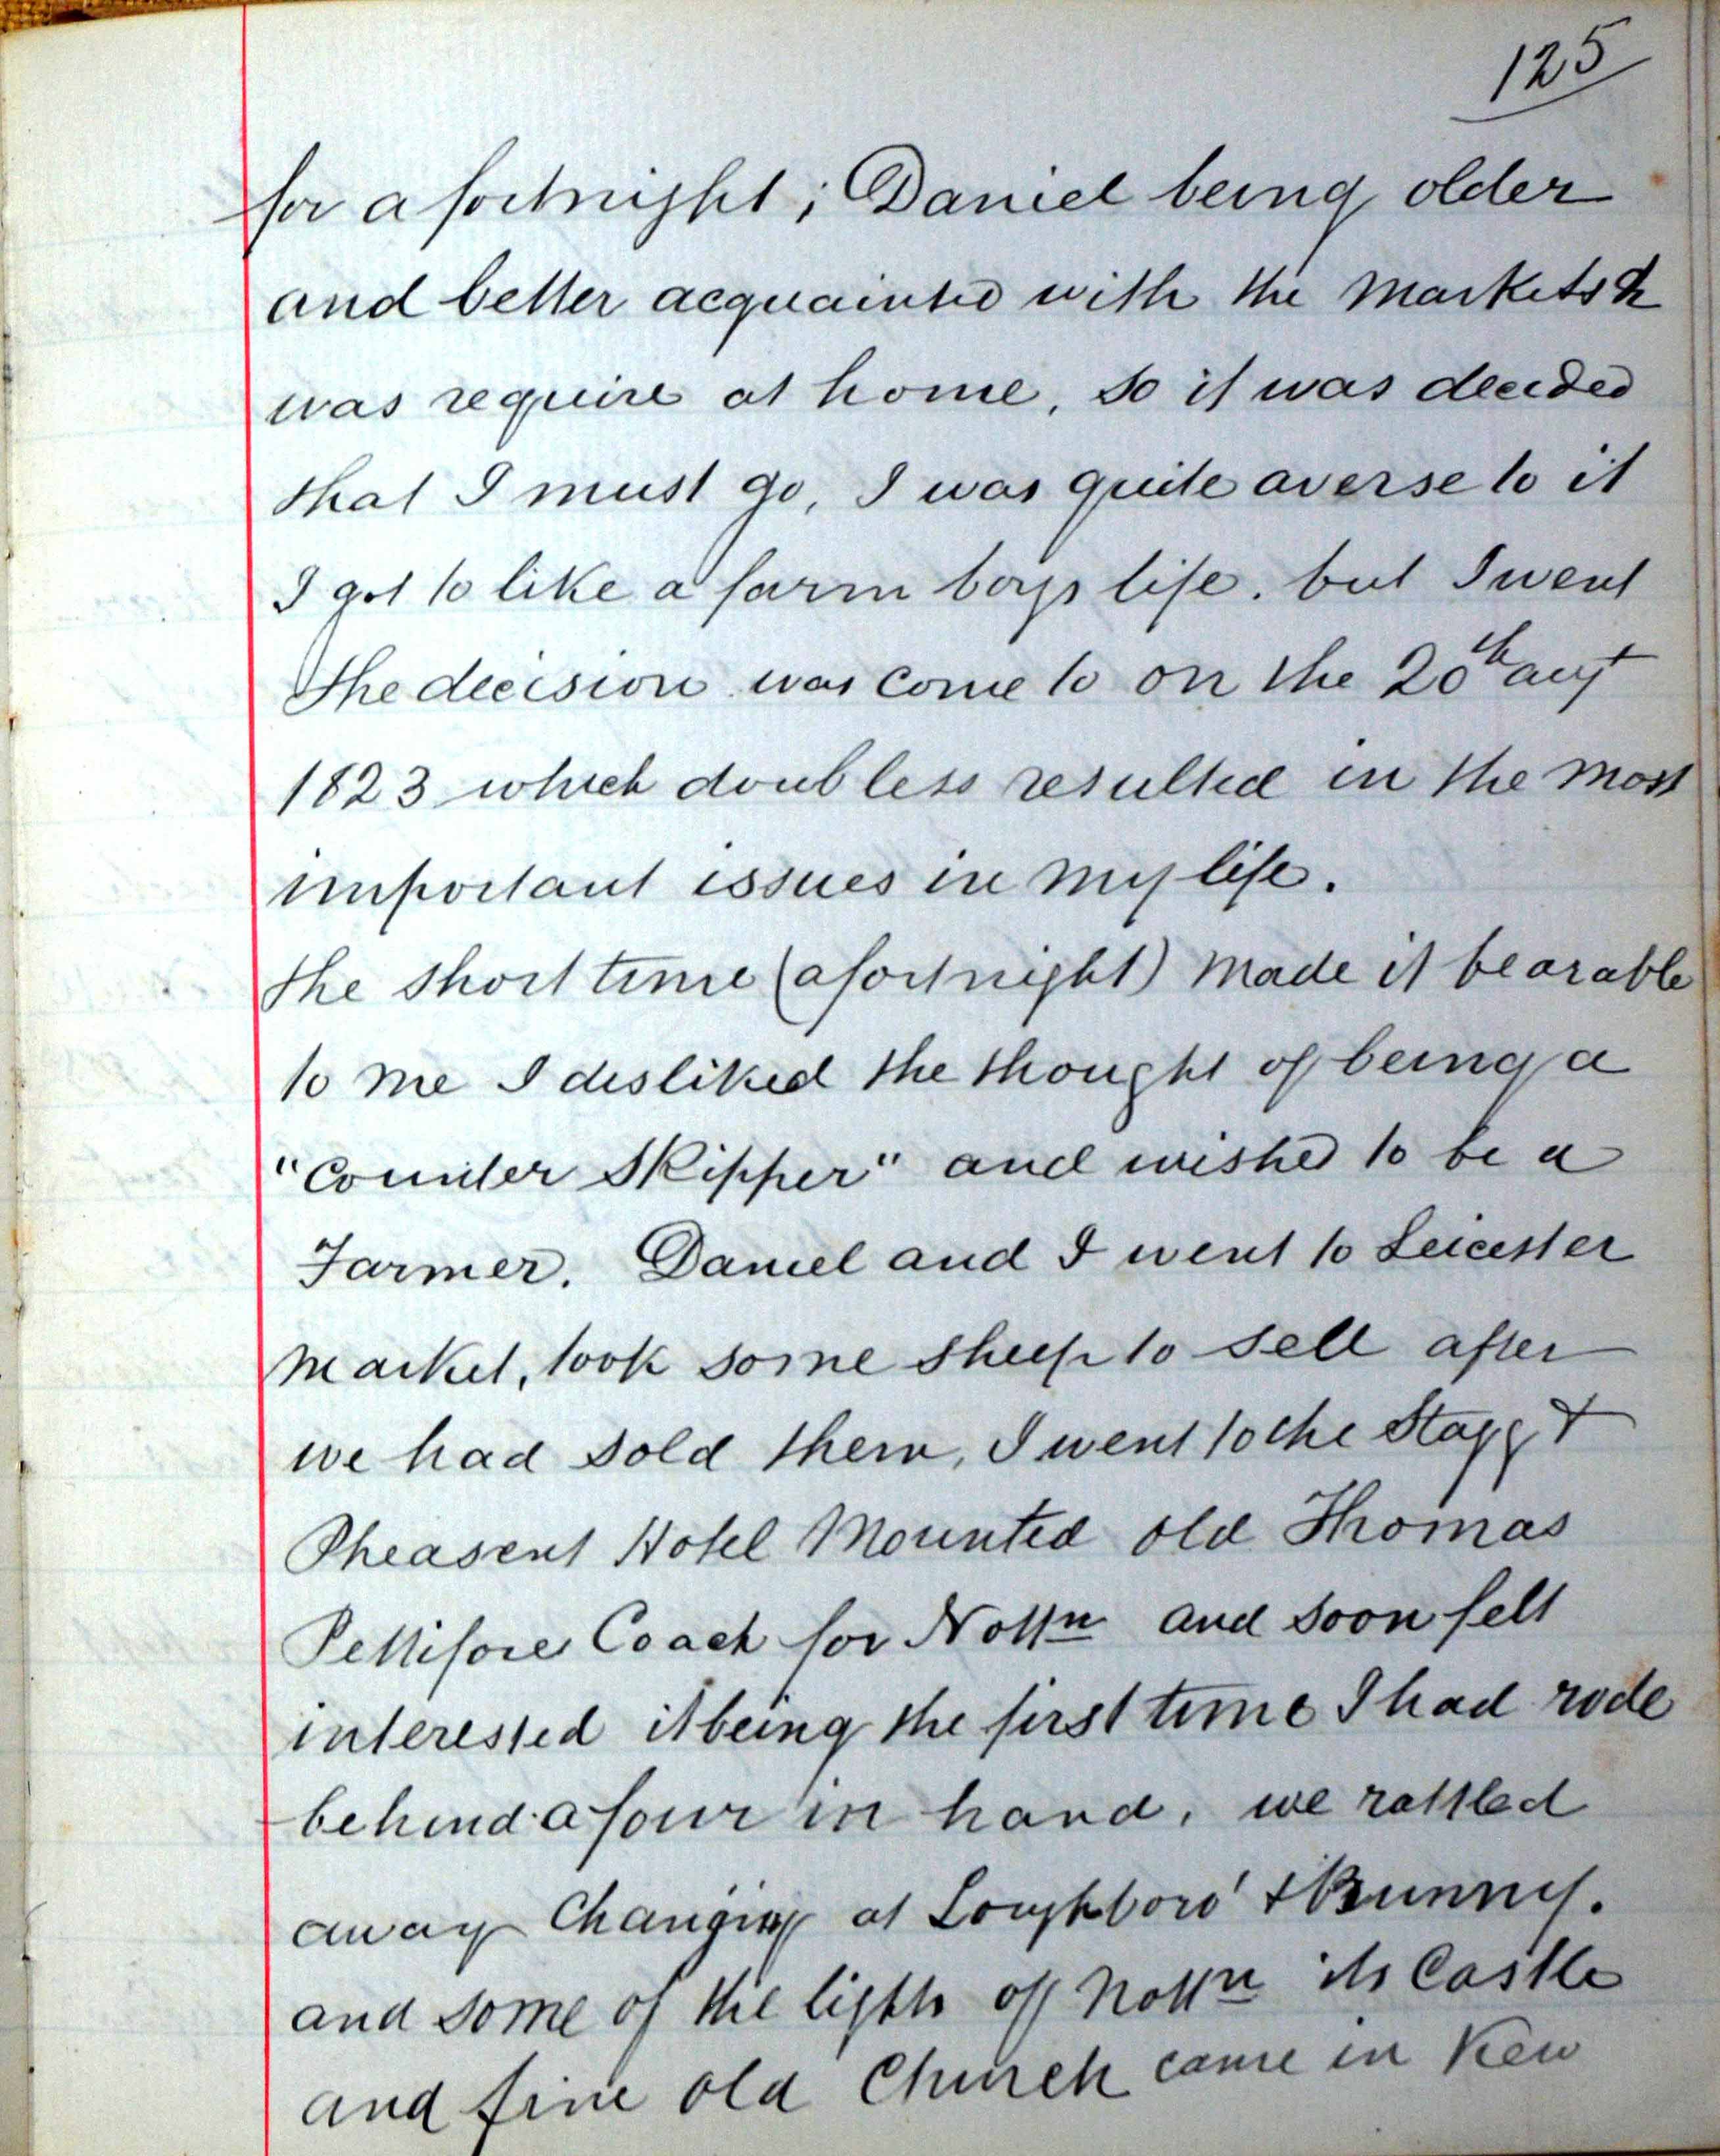 125
for a fortnight; Daniel being older
and better acquainted with the Markets &
was require at home, so it was decided
that I must go, I was quite averse to it
I got to like a farm boys life. but I went
The decision was come to on the 20th augt
1823 which doubtless resulted in the most
important issues in my life.
the short time (a fortnight) made it bearable
to me I disliked the thought of being a
"Counter Skipper" and wished to be a
Farmer. Daniel and I went to Leicester
Market, took some sheep to sell after
we had sold them, I went to the Stagg &
Pheasent Hotel Mounted old Thomas
Pettifores Coach for Nottn and soon felt
interested it being the first time I had rode
behind a four in hand, we rattled
away Changing at Loughboro' & Bunny.
and some of the lights of Nottn its Castle
and fine old Church came in View